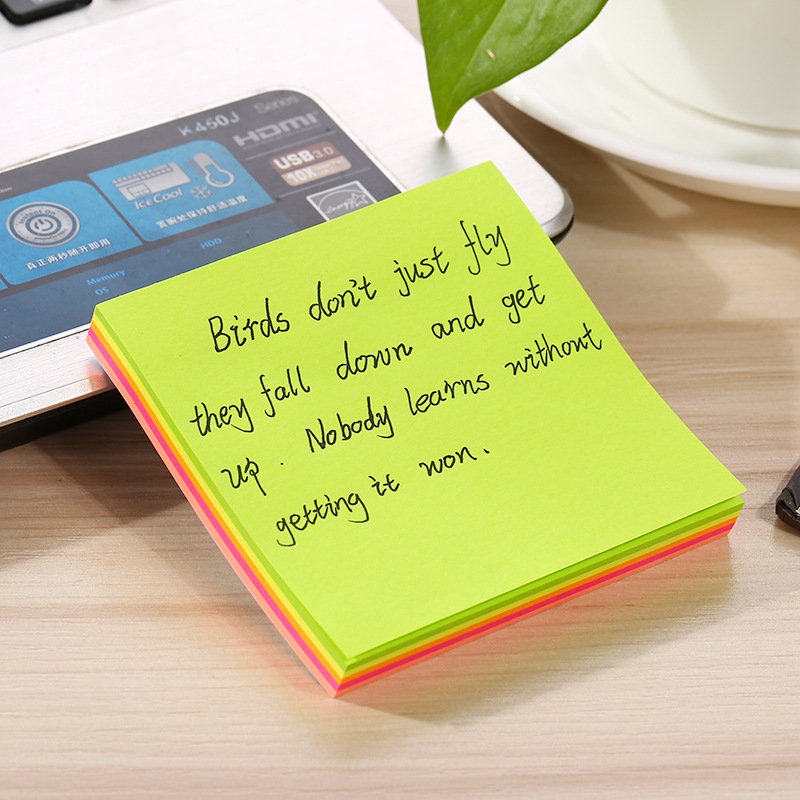 Series
K450J
HDMI
USB 3.0
10X
Instant On
真正两秒随开即用
IceCool
置腕处保持舒适温度
Memory
HDD
OS
Birds don't just fly
they fall down and get
up. Nobody learns without
getting it won.